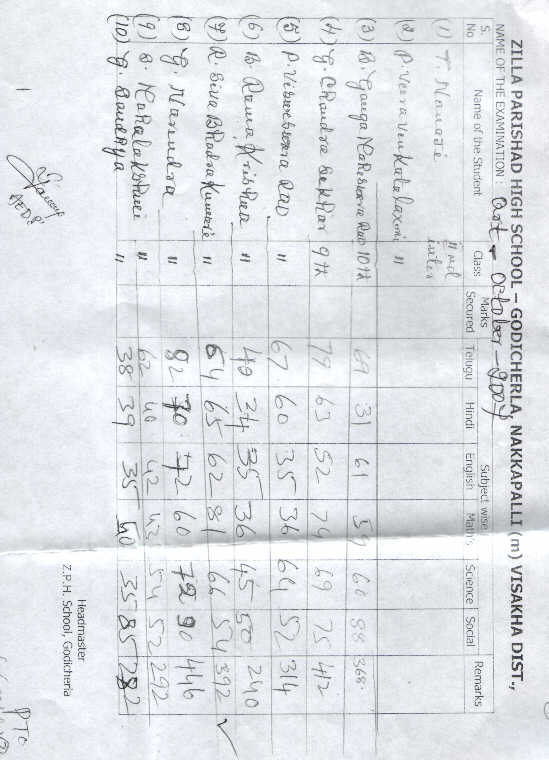 ZILLA PARISHAD HIGH SCHOOL – GODICHERLA, NAKKAPALLI (m) VISAKHA DIST.,
NAME OF THE EXAMINATION : October – 2007
S. No. Name of the Student Class Marks Secured Subject wise Remarks
Telugu Hindi English Maths Science Social
(1) T. Nanaji IInd inter
(2) P. Veera Venkatalaxmi "
(3) B. Ganga Rao 10th 69 31 61 59 60 88 368
(4) G. Chandra Sekhar 9th 79 63 52 74 69 75 412
(5) P. Visweswara Rao " 67 60 35 36 64 52 314
(6) B. Rama Krishna " 40 34 35 36 45 50 240
(7) R. Siva Bhadra " 64 65 62 81 66 54 392
(8) G. Narendra " 82 70 72 60 72 90 446
(9) B. " 62 40 42 43 54 52 292
(10) G. Sandhya " 38 39 35 50 35 85 282
Headmaster
Z.P.H. School, Godicherla
PTO